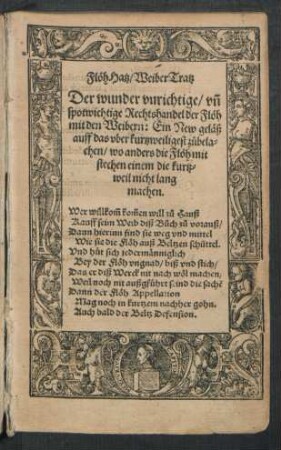 Flöh Hatz/ Weiber Tratz
Der wunder vnrichtige/ vñ
spotwichtige Rechtshandel der Flöh
mit den Weibern: Ein New geläß
auff das vber kurtzweiligest zubela-
chen/ wo anders die Flöh mit
stechen einem die kurtz-
weil nicht lang
machen.
Wer willkom̃ kom̃en will zů Hauß
Kauff seim Weib diß Bůch zů vorauß/
Dann hierinn sind sie weg vnd mittel
Wie sie die Flöh auß Beltzen schüttel.
Vnd hüt sich jedermänniglich
Bey der Flöh vngnad/ biß vnd stich/
Das er diß Werck nit nach wöll machen/
Weil noch nit außgführt sind die sachē
Dann der Flöh Appellation
Mag noch in kurtzem nachher gohn.
Auch bald der Beltz Defension.